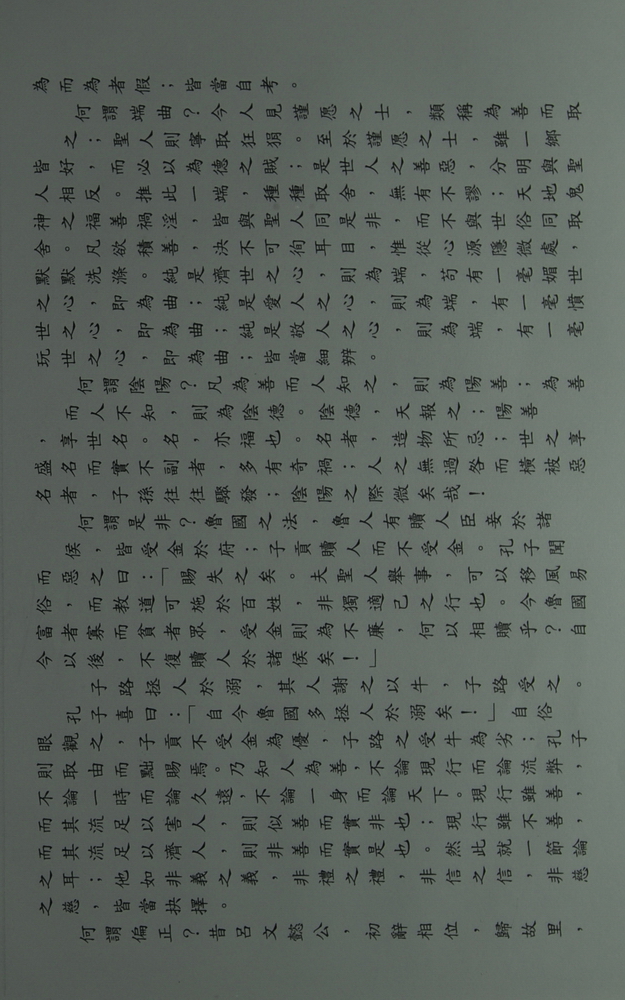 為而為者假；皆當自考。
何謂端曲？今人見謹愿之士，類稱為善而取
之；聖人則寧取狂狷。至於謹愿之士，雖一鄉
皆好，而必以為德之賊；是世人之善惡，分明與聖
人相反。推此一端，種種取舍，無有不謬；天地鬼
神之福善禍淫，皆與聖人同是非，而不與世俗同取
舍。凡欲積善，決不可徇耳目，惟從心源隱微處，
默默洗滌。純是濟世之心，則為端，苟有一毫媚世
之心，即為曲；純是愛人之心，則為端，有一毫憤
世之心，即為曲；純是敬人之心，則為端，有一毫
玩世之心，即為曲；皆當細辨。
何謂陰陽？凡為善而人知之，則為陽善；為善
而人不知，則為陰德。陰德，天報之；陽善
，享世名。名，亦福也。名者，造物所忌；世之享
盛名而實不副者，多有奇禍；人之無過咎而橫被惡
名者，子孫往往驟發；陰陽之際微矣哉！
何謂是非？魯國之法，魯人有贖人臣妾於諸
侯，皆受金於府；子貢贖人而不受金。孔子聞
而惡之曰：「賜失之矣。夫聖人舉事，可以移風易
俗，而教道可施於百姓，非獨適己之行也。今魯國
富者寡而貧者眾，受金則為不廉，何以相贖乎？自
今以後，不復贖人於諸侯矣！」
子路拯人於溺，其人謝之以牛，子路受之。
孔子喜曰：「自今魯國多拯人於溺矣！」自俗
眼觀之，子貢不受金為優，子路之受牛為劣；孔子
則取由而黜賜焉。乃知人為善，不論現行而論流弊，
不論一時而論久遠，不論一身而論天下。現行雖善，
而其流足以害人，則似善而實非也；現行雖不善，
而其流足以濟人，則非善而實是也。然此就一節論
之耳；他如非義之義，非禮之禮，非信之信，非慈
之慈，皆當抉擇。
何謂偏正？昔呂文懿公，初辭相位，歸故里，